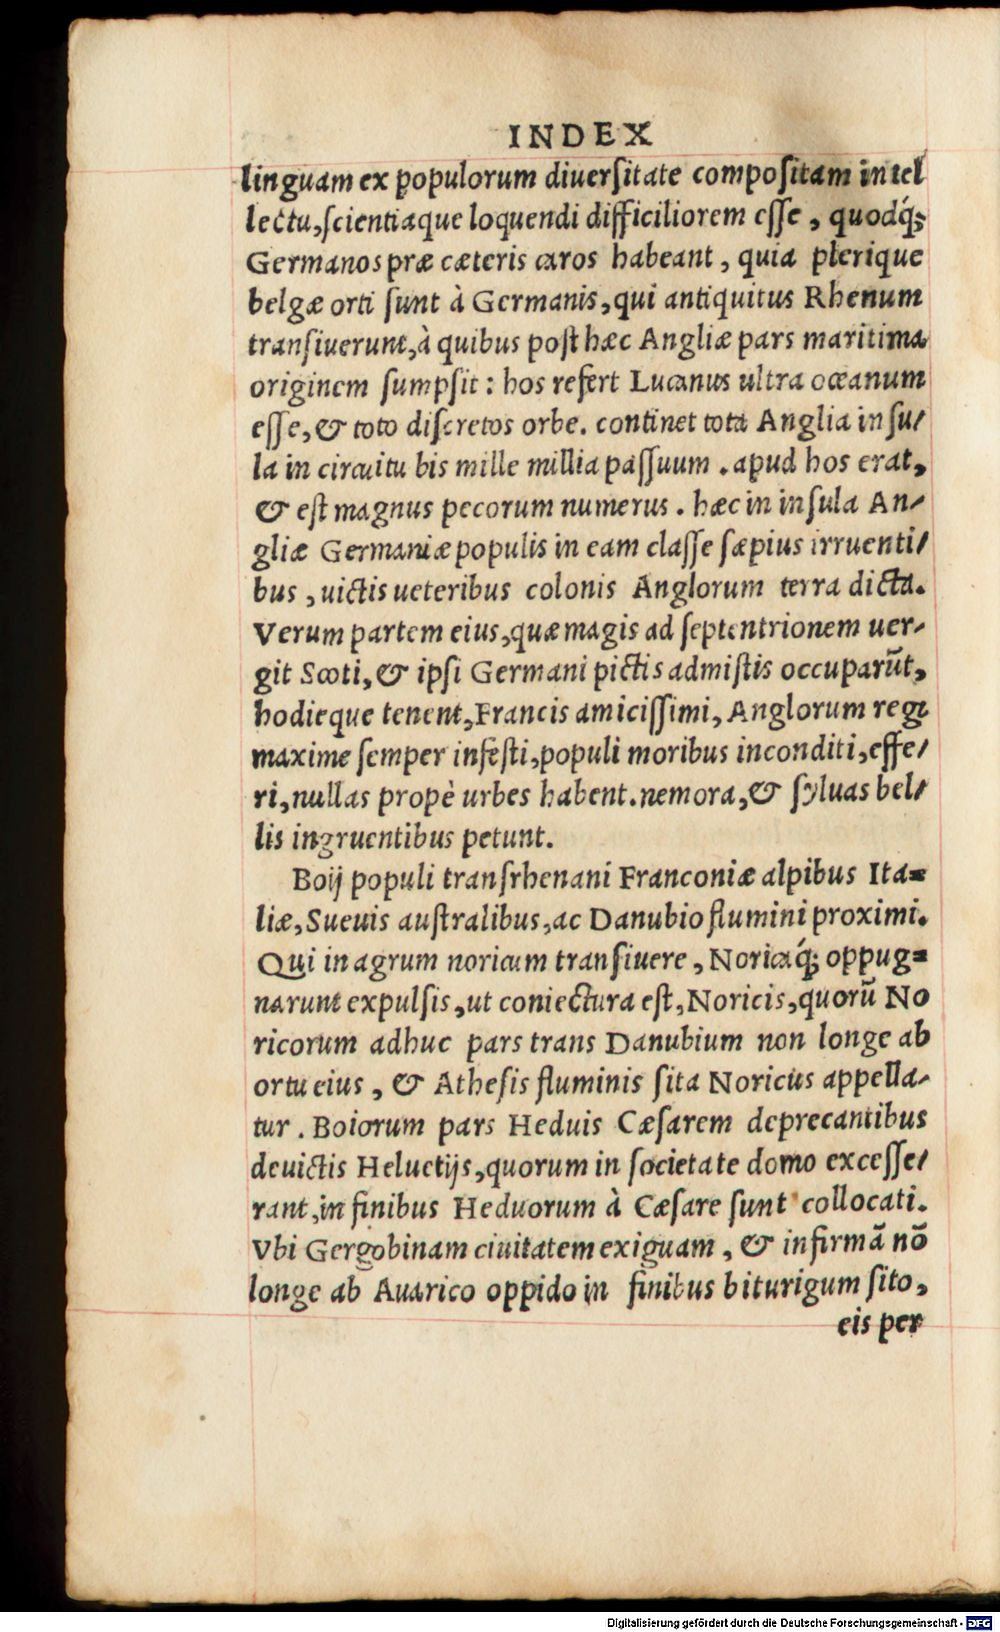 INDEX
linguam ex populorum diuerſitate compoſitam intel
lectu,ſcientiaque loquendi difficiliorem eſſe , quodq́;
Germanos præ cæteris caros habeant , quia plerique
belgæ orti ſunt à Germanis,qui antiquitus Rhenum
tranſiuerunt,à quibus poſt hæc Angliæ pars maritima
originem ſumpſit : hos refert Lucanus ultra oceanum
eſſe,& toto diſcretos orbe. continet tota Anglia inſu/
la in circuitu bis mille millia paſſuum . apud hos erat,
& eſt magnus pecorum numerus . hæc in inſula An/
gliæ Germaniæ populis in eam claſſe ſæpius irruenti/
bus , uictis ueteribus colonis Anglorum terra dicta.
Verum partem eius,quæ magis ad ſeptentrionem uer/
git Scoti,& ipſi Germani pictis admiſtis occuparũt,
hodieque tenent,Francis amiciſſimi, Anglorum regi
maxime ſemper infeſti,populi moribus inconditi,effe/
ri,nullas propè urbes habent.nemora,& ſyluas bel/
lis ingruentibus petunt.
Boij populi tranſrhenani Franconiæ alpibus Ita=
liæ,Sueuis auſtralibus,ac Danubio flumini proximi.
Qui in agrum noricum tranſiuere , Noricaq́; oppug=
narunt expulſis,ut coniectura eſt,Noricis,quorũ No
ricorum adhuc pars trans Danubium non longe ab
ortu eius , & Atheſis fluminis ſita Noricus appella/
tur . Boiorum pars Heduis Cæſarem deprecantibus
deuictis Heluetijs,quorum in ſocietate domo exceſſe/
rant,in finibus Heduorum à Cæſare ſunt collocati.
Vbi Gergobinam ciuitatem exiguam , & infirmã nõ
longe ab Auarico oppido in finibus biturigum ſito,
eis per
Digitalisierung gefördert durch die Deutsche Forschungsgemeinschaft - DFG